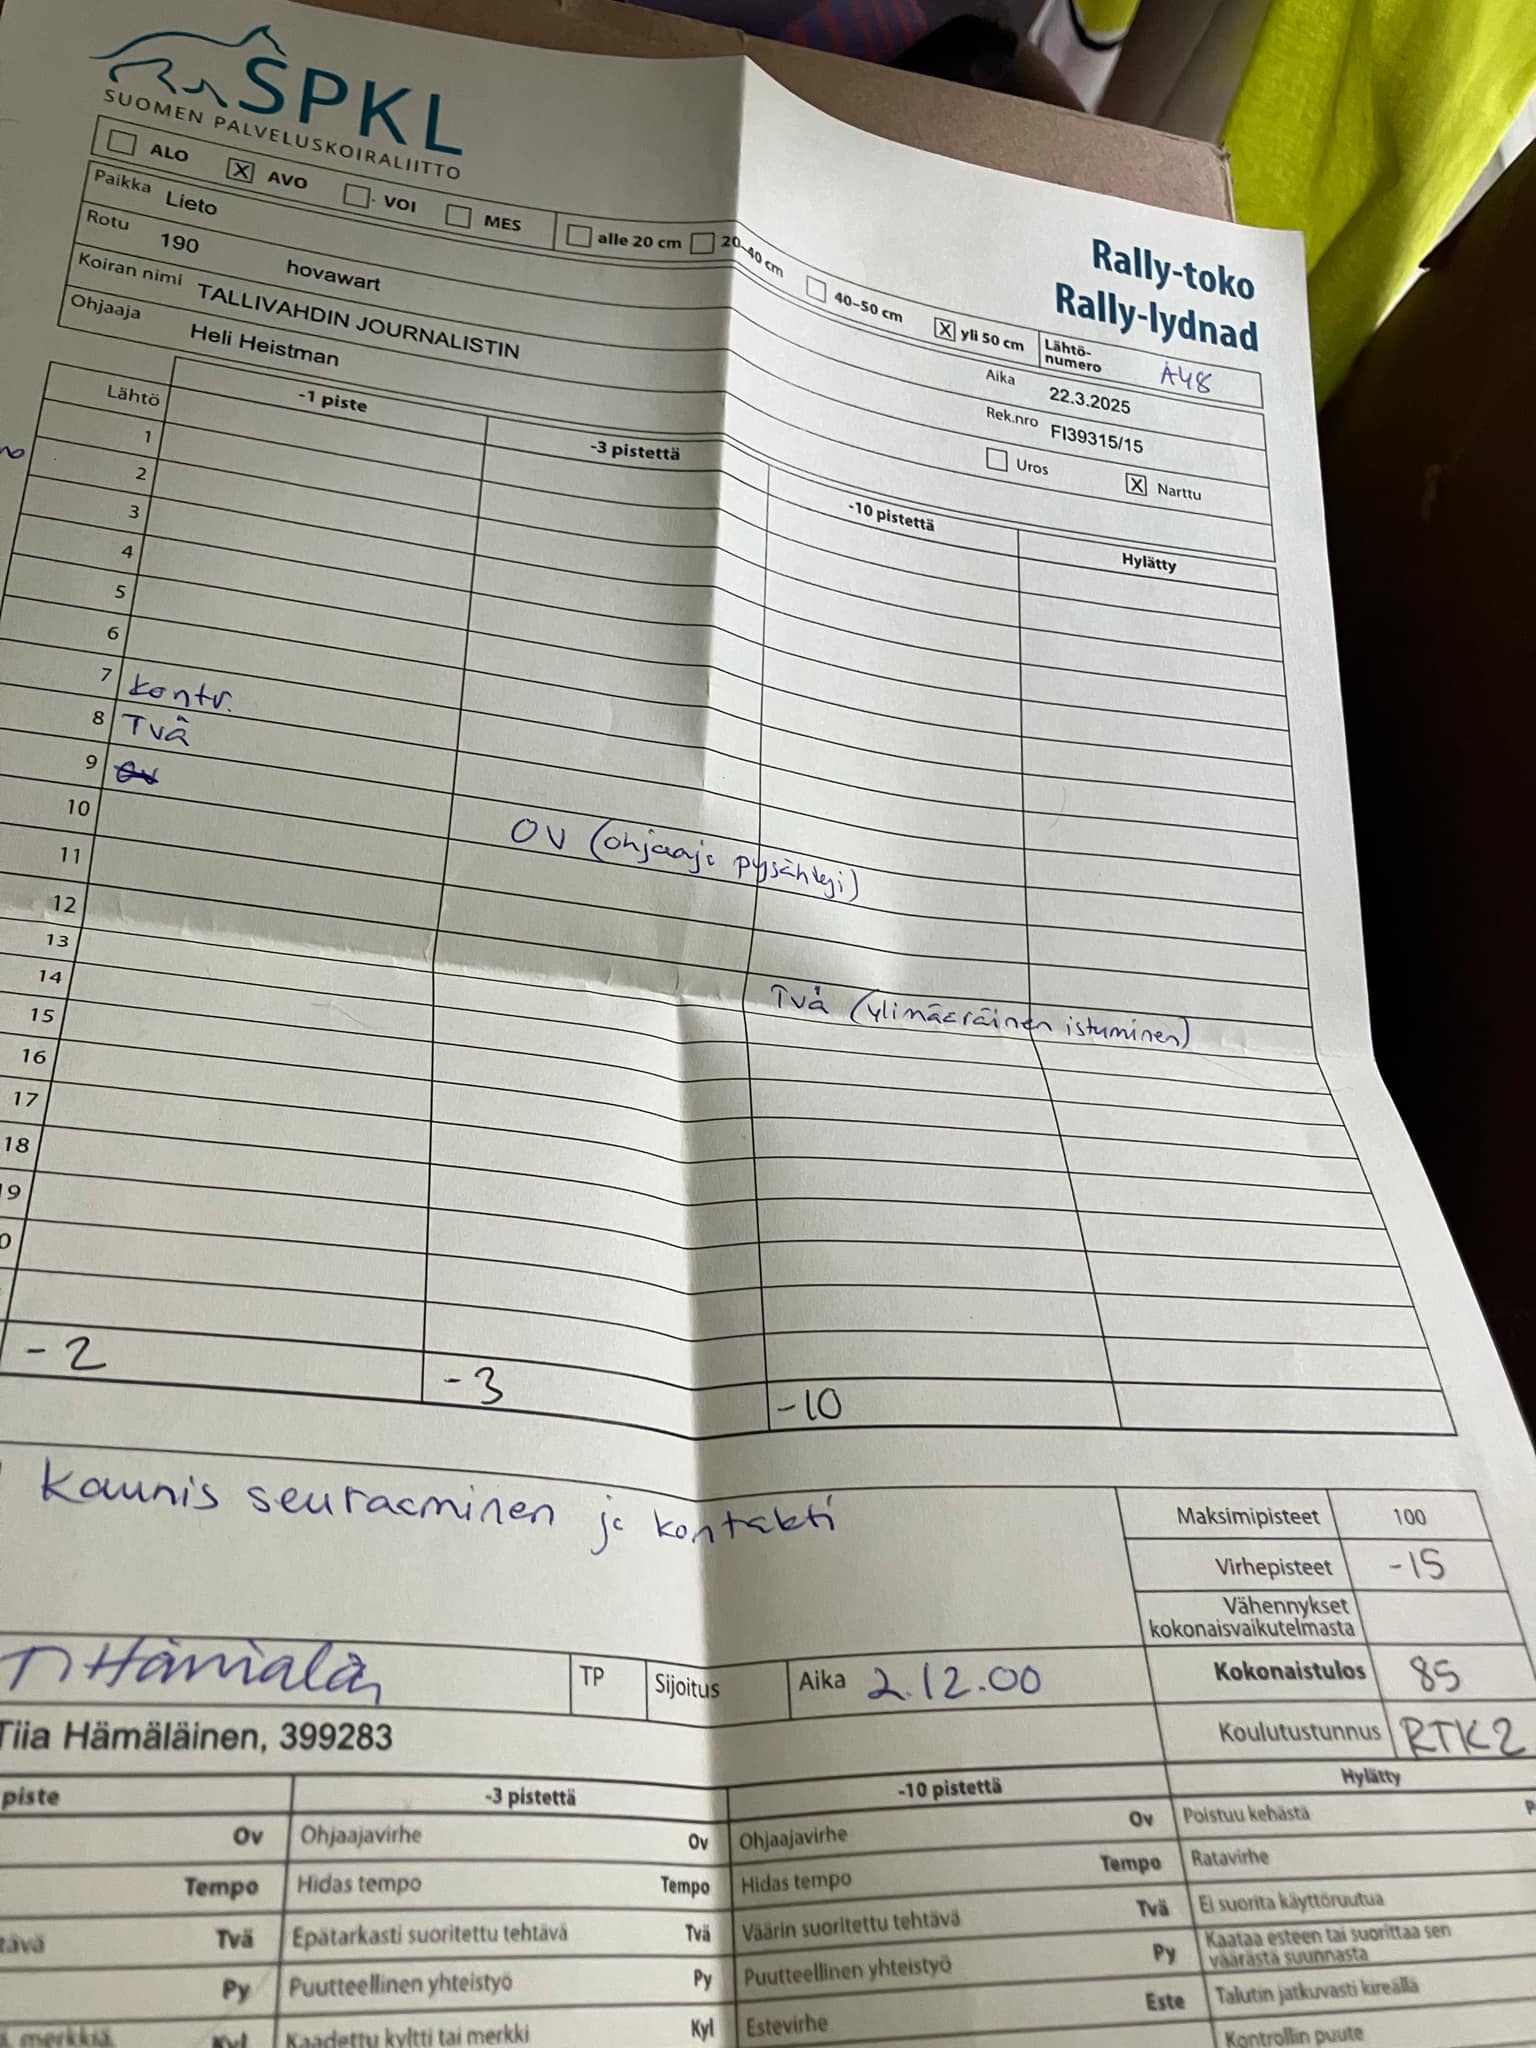 SPKL
SUOMEN PALVELUSKOIRALIITTO
Rally-toko
Rally-lydnad
ALO X AVO VOI MES alle 20 cm 20–40 cm 40–50 cm X yli 50 cm Lähtö-numero A48
Paikka Lieto Aika 22.3.2025
Rotu 190 hovawart Rek.nro FI39315/15
Koiran nimi TALLIVAHDIN JOURNALISTIN Uros X Narttu
Ohjaaja Heli Heistman
Lähtö -1 piste -3 pistettä -10 pistettä Hylätty
1
2
3
4
5
6
7 kontr.
8 Tvä
9 ov
10 OV (ohjaaja pysähtyi)
11
12
13 Tvä (ylimääräinen istuminen)
14
15
16
17
18
19
-2 -3 -10
Kaunis seuraaminen ja kontakti
Maksimipisteet 100
Virhepisteet -15
Vähennykset kokonaisvaikutelmasta
Kokonaistulos 85
TP Sijoitus Aika 2.12.00
Koulutustunnus RTK2
Tiia Hämäläinen, 399283
piste -3 pistettä -10 pistettä Hylätty
Ov Ohjaajavirhe Ov Ohjaajavirhe Ov Poistuu kehästä
Tempo Hidas tempo Tempo Hidas tempo Tempo Ratavirhe
Tvä Epätarkasti suoritettu tehtävä Tvä Väärin suoritettu tehtävä Tvä Ei suorita käyttöruutua
Py Puutteellinen yhteistyö Py Puutteellinen yhteistyö Py Kaataa esteen tai suorittaa sen väärästä suunnasta
merkkiä Kyl Kaadettu kyltti tai merkki Kyl Estevirhe Este Talutin jatkuvasti kireällä
Kontrollin puute